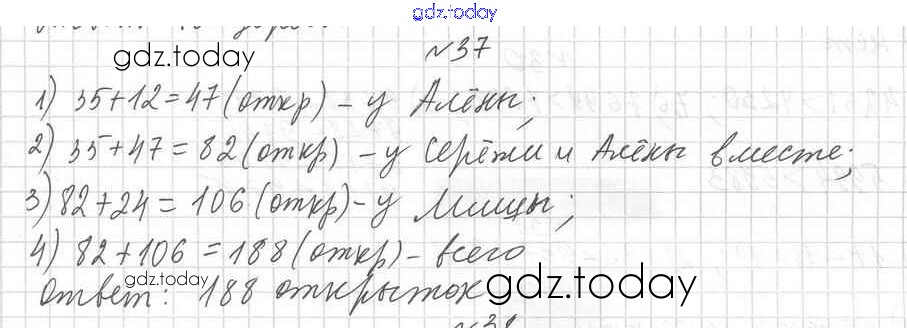 gdz.today
gdz.today
№37
1) 35+12=47(откр) – у Алёны;
2) 35+47=82(откр) – у Серёжи и Алёны вместе;
3) 82+24=106(откр) – у Миши;
4) 82+106=188(откр) – всего
gdz.today
Ответ: 188 открыток
gdz.today